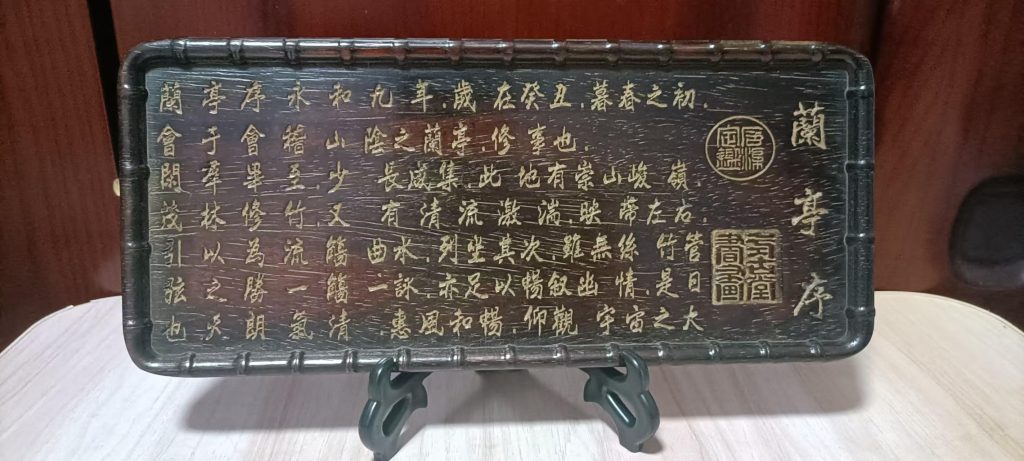 蘭亭序
蘭亭序永和九年,歲在癸丑,暮春之初,
會于會稽山陰之蘭亭,修事也,
羣畢至,少長咸集,此地有崇山峻嶺,
茂林修竹,又有清流激湍,映帶左右,
引以為流觴曲水,列坐其次,雖無絲竹管
弦之勝一觴二詠,亦足以暢叙幽情,是日
也天朗氣清惠風和暢,仰觀宇宙之大